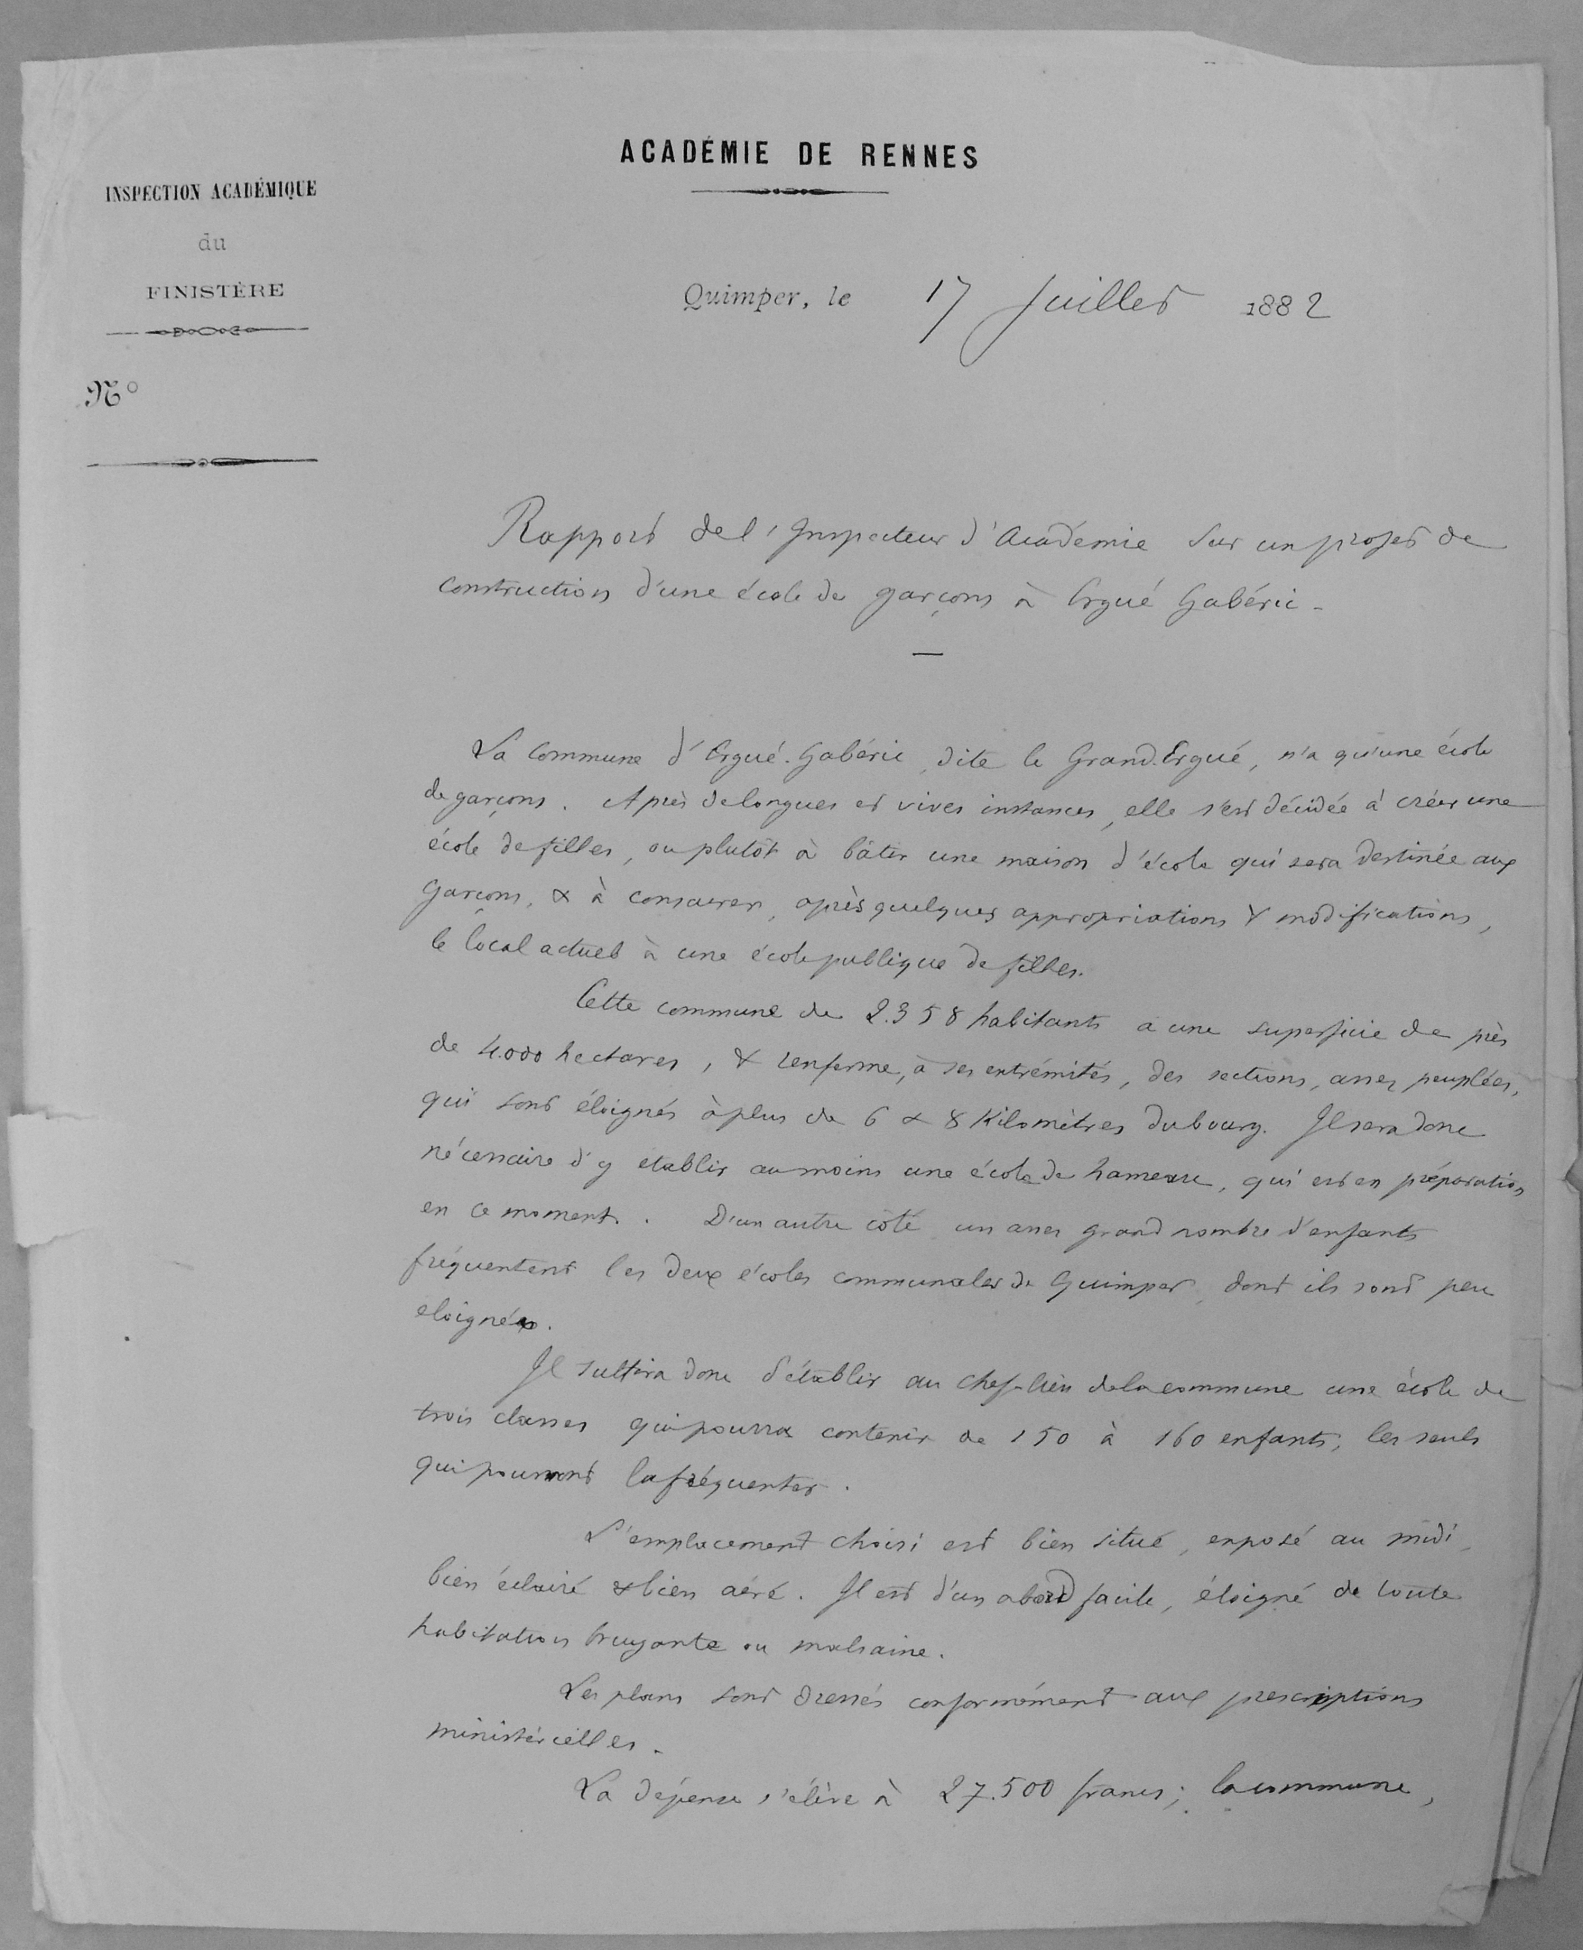 ACADÉMIE DE RENNES
INSPECTION ACADÉMIQUE
du
FINISTÈRE
Quimper, le 17 Juillet 1882
N°
Rapport de l'Inspecteur d'Académie sur un projet de
construction d'une école de garçons à Ergué Gabéric -
La commune d'Ergué-Gabéric, dite le Grand-Ergué, n'a qu'une école
de garçons. Après de longues et vives instances, elle s'est décidée à créer une
école de filles, ou plutôt à bâtir une maison d'école qui sera destinée aux
garçons, & à consacrer, après quelques appropriations & modifications,
le local actuel à une école publique de filles.
Cette commune de 2.358 habitants a une superficie de près
de 4.000 hectares, & renferme, à ses extrémités, des sections, assez peuplées,
qui sont éloignés à plus de 6 & 8 Kilomètres du bourg. Il sera donc
nécessaire d'y établir au moins une école de hameau, qui est en préparation
en ce moment. D'un autre côté un assez grand nombre d'enfants
fréquentent les deux écoles communales de Quimper, dont ils sont peu
éloignés.
Il suffira donc d'établir au chef-lieu de la commune une école de
trois classes qui pourra contenir de 150 à 160 enfants, les seuls
qui pourront la fréquenter.
L'emplacement choisi est bien situé, exposé au midi,
bien éclairé & bien aéré. Il est d'un abord facile, éloigné de toute
habitation bruyante ou malsaine.
Les plans sont dressés conformément aux prescriptions
ministérielles.
La dépense s'élève à 27.500 francs; la commune,